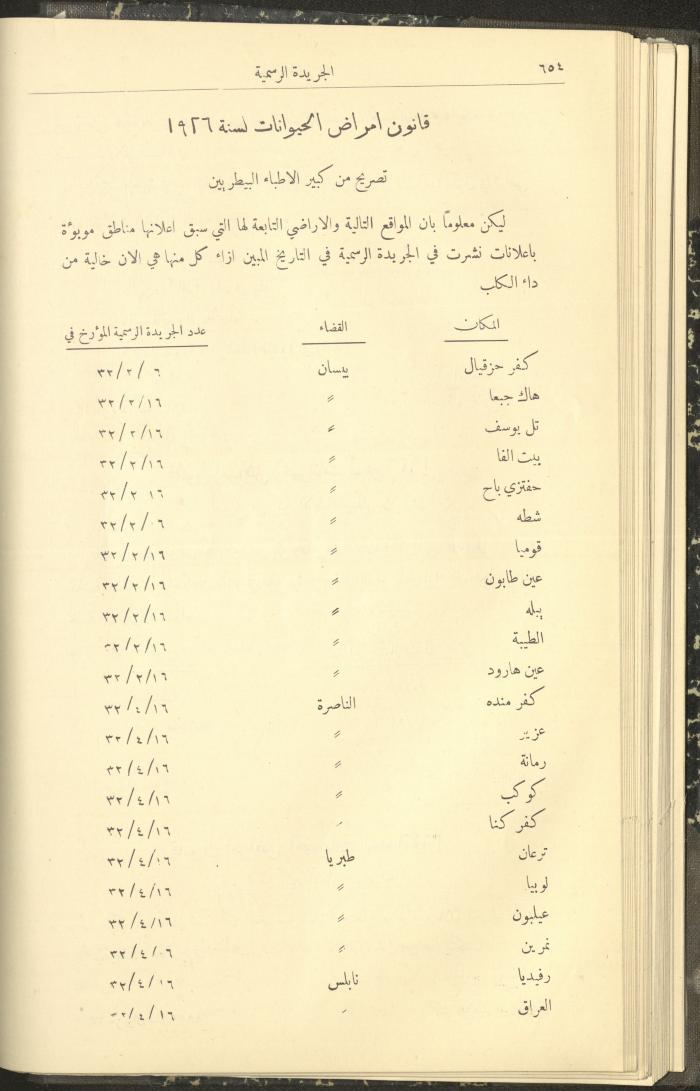 ٦٥٤ الجريدة الرسمية
قانون امراض الحيوانات لسنة ١٩٢٦
تصريح من كبير الاطباء البيطريين
ليكن معلومًا بان المواقع التالية والاراضي التابعة لها التي سبق اعلانها مناطق موبوٴة
باعلانات نشرت في الجريدة الرسمية في التاريخ المبين ازاء كل منها هي الان خالية من
داء الكلب
المكان القضاء عدد الجريدة الرسمية المؤرخ في
كفر حزقيال بيسان ٦ /٢/٣٢
هاك جبعا " ١٦/٢/٣٢
تل يوسف " ١٦/٢/٣٢
بيت الفا " ١٦/٢/٣٢
حفتزي باح " ١٦ ٢/٣٢
شطه " ٠٦/٢/٣٢
قوميا " ١٦/٢/٣٢
عين طابون " ١٦/٢/٣٢
يبله " ١٦/٢/٣٢
الطيبة " ١٦/٢/٣٢
عين هارود " ١٦/٢/٣٢
كفر منده الناصرة ١٦/٤/٣٢
عزير " ١٦/٤/٣٢
رمانة " ١٦/٤/٣٢
كوكب " ١٦/٤/٣٢
كفر كنا " ١٦/٤/٣٢
ترعان طبريا ١٦/٤/٣٢
لوبيا " ١٦/٤/٣٢
عيلبون " ١٦/٤/٣٢
نمرين " ٠٦/٤/٣٢
رفيديا نابلس ١٦/٤/٣٢
العراق " ١٦/٤/٣٢